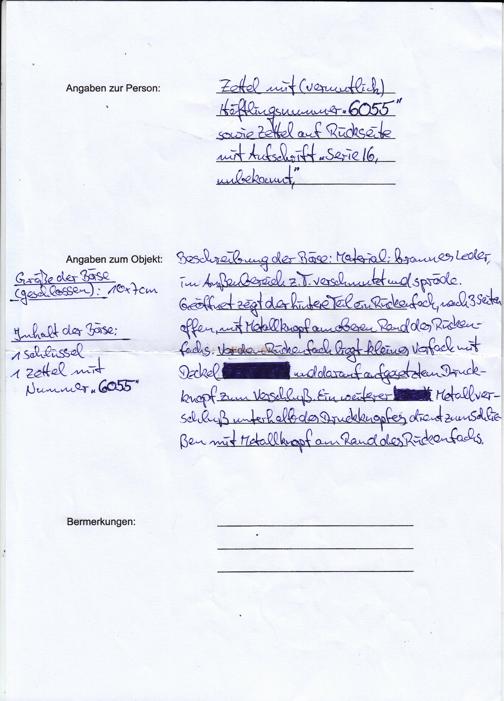 Angaben zur Person:
Zettel mit (vermutlich)
Häftlingsnummer „6055"
sowie Zettel auf Rückseite
mit Aufschrift „Serie 16,
unbekannt"
Angaben zum Objekt:
Beschreibung der Börse: Material: braunes Leder,
im Außenbereich z.T. verschmutzt und spröde.
Geöffnet zeigt der hintere Teil ein Rückenfach, nach 3 Seiten
offen, mit Metallknopf am oberen Rand des Rücken-
fachs. Vor dem Rückenfach liegt kleines Vorfach mit
Deckel und darauf aufgesetzten Druck-
knopf zum Verschluß. Ein weiterer Metallver-
schluß unterhalb des Druckknopfes dient zum Schlie-
ßen mit Metallknopf am Rand des Rückenfachs.
Größe der Börse
(geschlossen): 10x7cm
Inhalt der Börse:
1 Schlüssel
1 Zettel mit
Nummer „6055"
Bermerkungen: